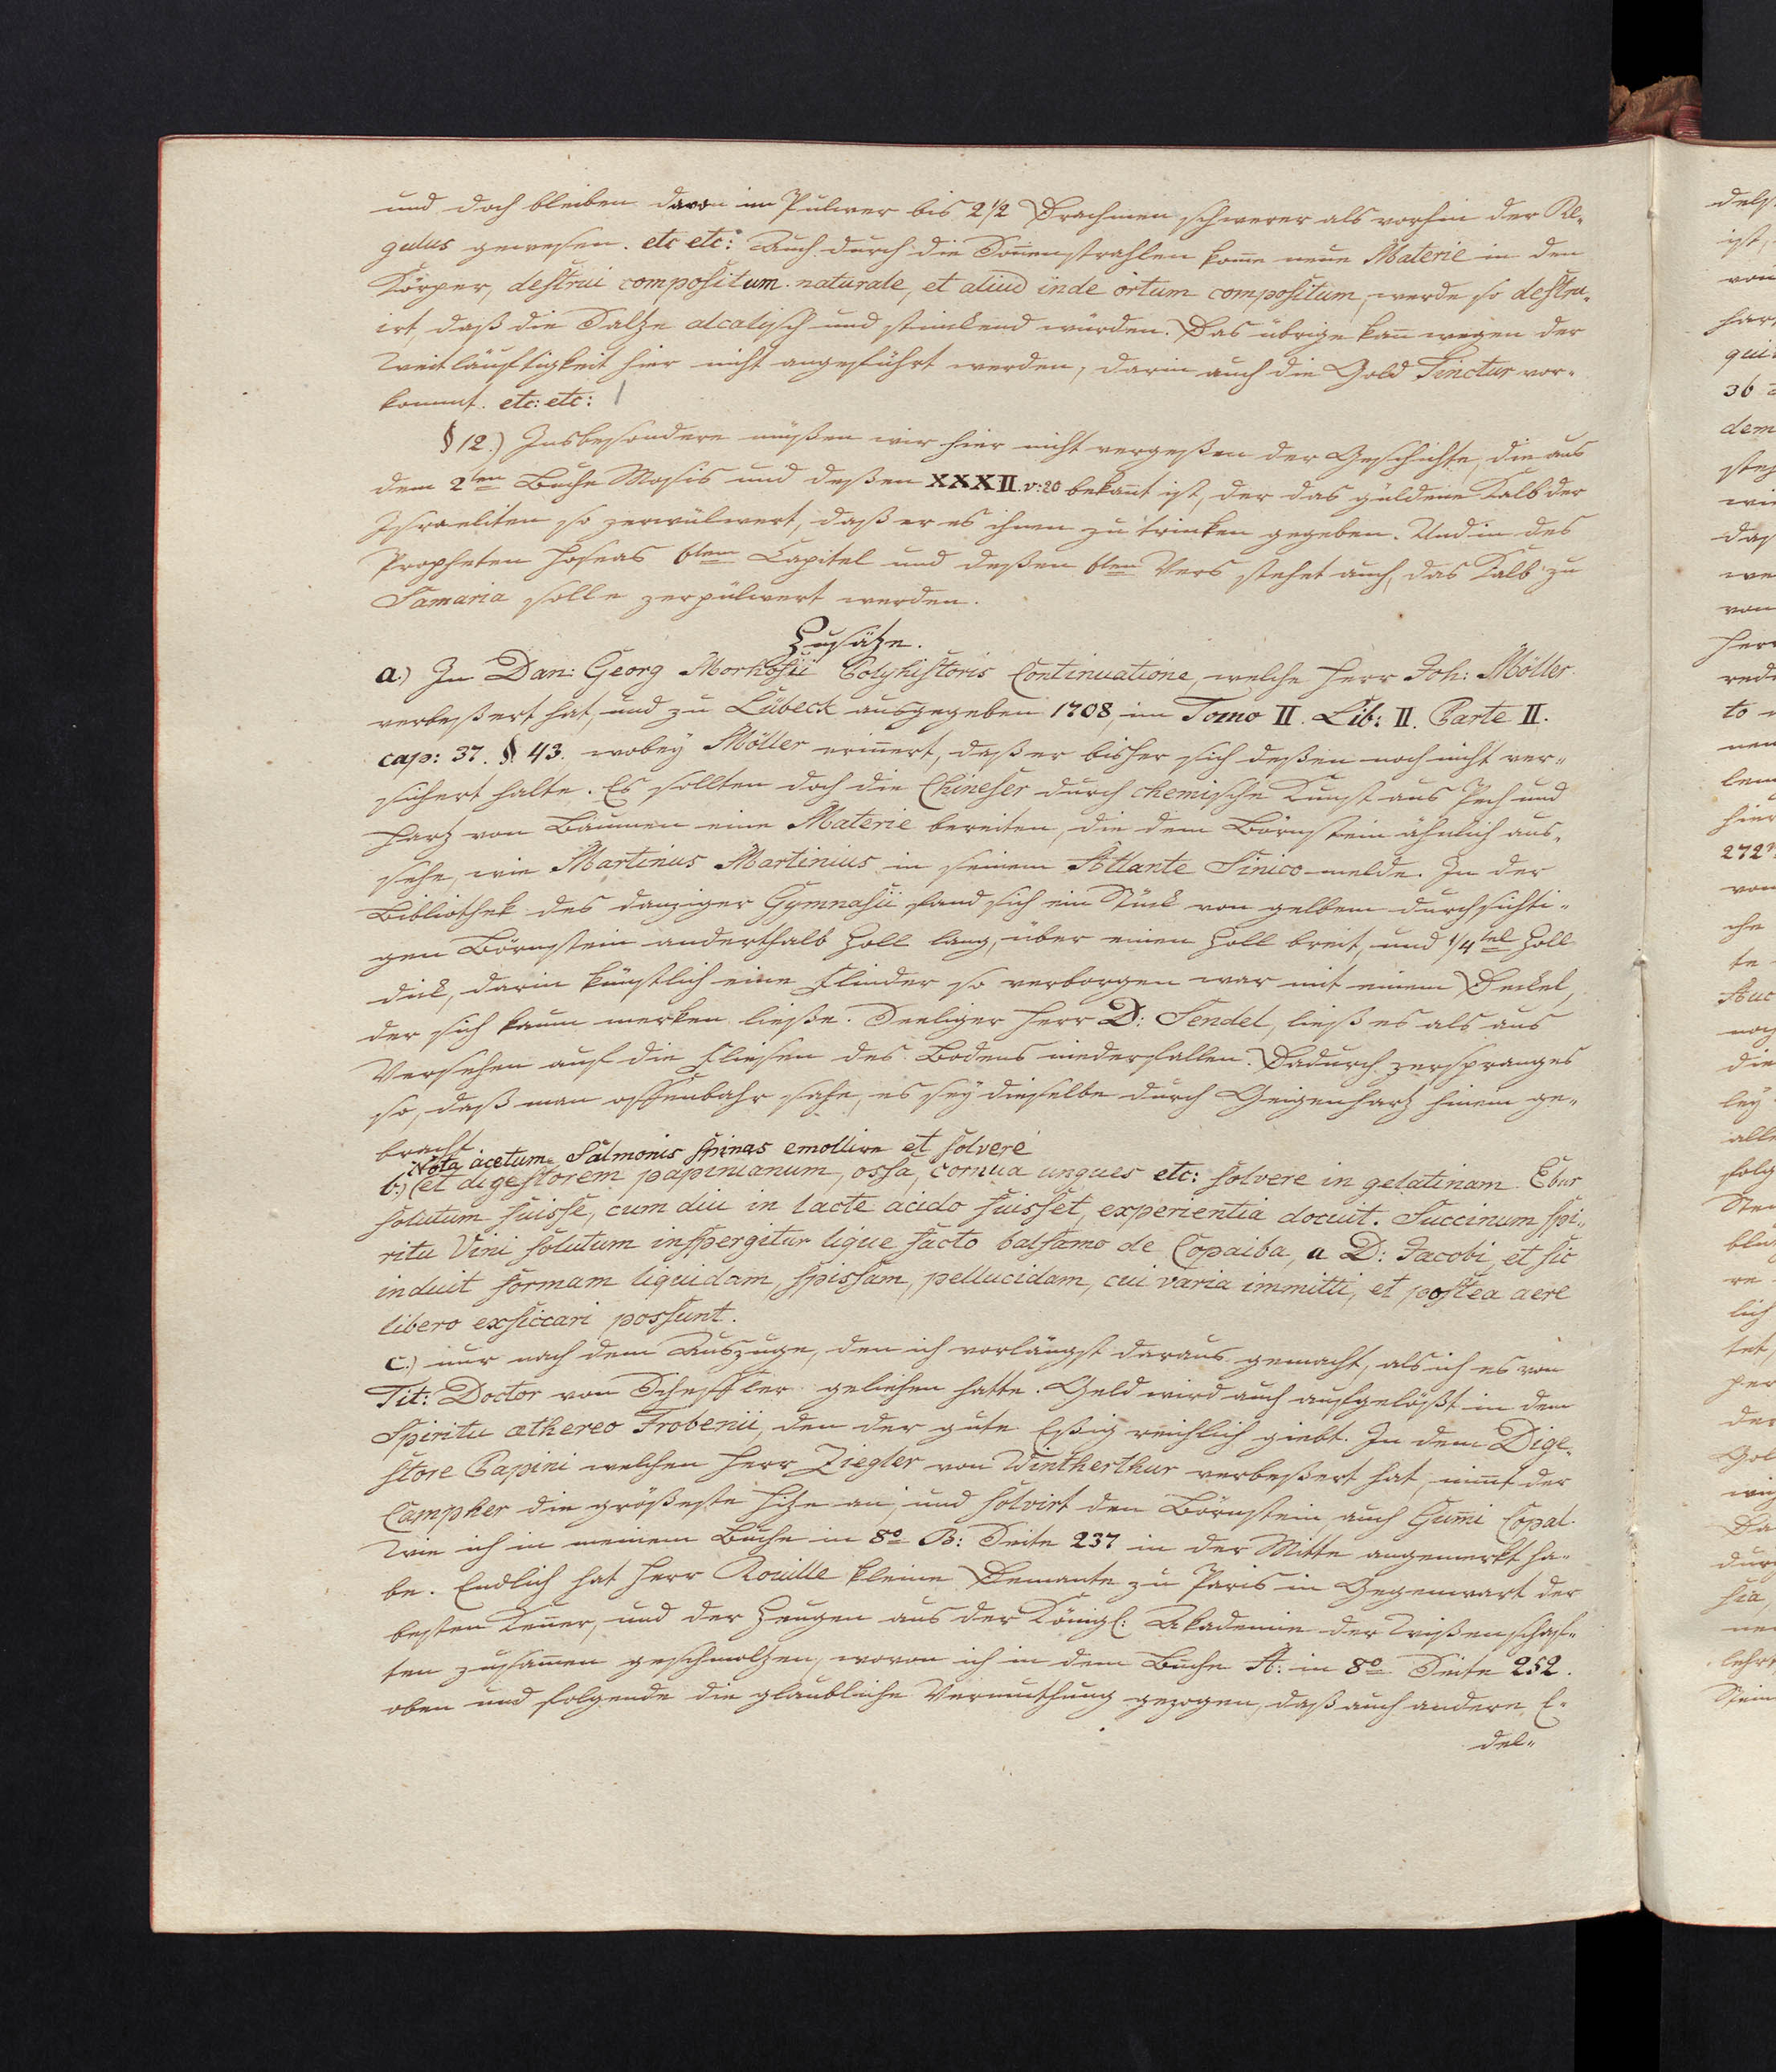 und doch bleiben davon im Pulver bis 2 1/2 Drachmen schwerer als vorhin der Re-
gulus gewesen. etc etc: Auch durch die Soñenstrahlen kom̃e neue Materie in den
Körper, destrui compositum naturale, et aliud inde ortum compositum, werde so destru-
irt, daß die Saltze alcalisch und stinckend würden. Das übrige kañ wegen der
Weitläuftigkeit hier nicht angeführt werden, darin auch die Gold Tinctur vor-
kommt. etc: etc:
§ 12.) Insbesondere müßen wir hier nicht vergeßen der Geschichte, die aus
dem 2ten Buche Mosis und deßen XXXII. v: 20 bekañt ist, der das güldene Kalb der
Israeliten so zerpülwert, daß er es ihnen zu trinken gegeben. Und in des
Propheten Hoseas 6tem Capitel und deßen 6ten Vers stehet auch, das Kalb zu
Samaria solle zerpülvert werden.
Zusätze.
a.) In Dan: Georg Morhofii Polyhistoris Continuatione, welche Herr Joh: Möller
verbeßert hat, und zu Lübeck ausgegeben 1708, im Tomo II. Lib: II. Parte II.
cap: 37. § 43. wobey Möller eriñert, daß er bisher sich deßen noch nicht ver-
sichert halte. Es sollten doch die Chineser durch chemische Kunst aus Pech und
Hartz von Bäumen eine Materie bereiten, die dem Börnstein ähnlich aus-
sehe, wie Martinus Martinius in seinem Atlante Sinico melde. In der
Bibliothek des danziger Gymnasii fand sich ein Stück von gelbem durchsichti-
gen Börnstein anderthalb Zoll lang, über einen Zoll breit, und 1/4tel Zoll
dick, darin künstlich eine Flinder so verborgen war mit einem Deckel,
der sich kaum merken ließe. Seeliger Herr D: Sendel, ließ es als aus
Versehen auf die Fliesen des Bodens niederfallen. Dadurch zersprang es
so, daß man offenbahr sahe, es sey dieselbe durch Geigenhartz hinein ge-
bracht
Nota acetum Salmonis spinas emollire et solvere
b.) (et digestorem papinianum, ossa, cornua ungues etc: solvere in gelatinam. Ebur
solutum fuisse, cum diu in lacte acido fuisset, experientia docuit. Succinum spi-
ritu Vini solutum inspergitur lique facto balsamo de Copaiba, a D: Jacobi, et sic
induit formam liquidam, spissam, pellucidam, cui varia immitti, et postea aere
libero exsiccari possunt.
c.) nur nach dem Auszuge, den ich vorlängst daraus gemacht, als ich es von
Tit: Doctor von Scheffler geliehen hatte. Gold wird auch aufgelößt in dem
Spiritu æthereo Frobenii, den der gute Eßig reichlich giebt. In dem Dige-
store Papini welchen Herr Ziegler von Wintherthur verbeßert hat, nim̃t der
Campher die größeste Hitze an, und solvirt den Börnstein auch Gum̃i Copal.
Wie ich in meinem Buche in 8o B: Seite 237 in der Mitte angemerkt ha-
be. Endlich hat Herr Rouille kleine Demante zu Paris in Gegenwart der
besten Keñer, und der Zeugen aus der Königl: Akademie der Wißenschaf-
ten zusam̃en geschmolzen, wovon ich in dem Buche A: in 8o Seite 252.
oben und folgende die glaubliche Vermuthung gezogen, daß auch andere E-
del-